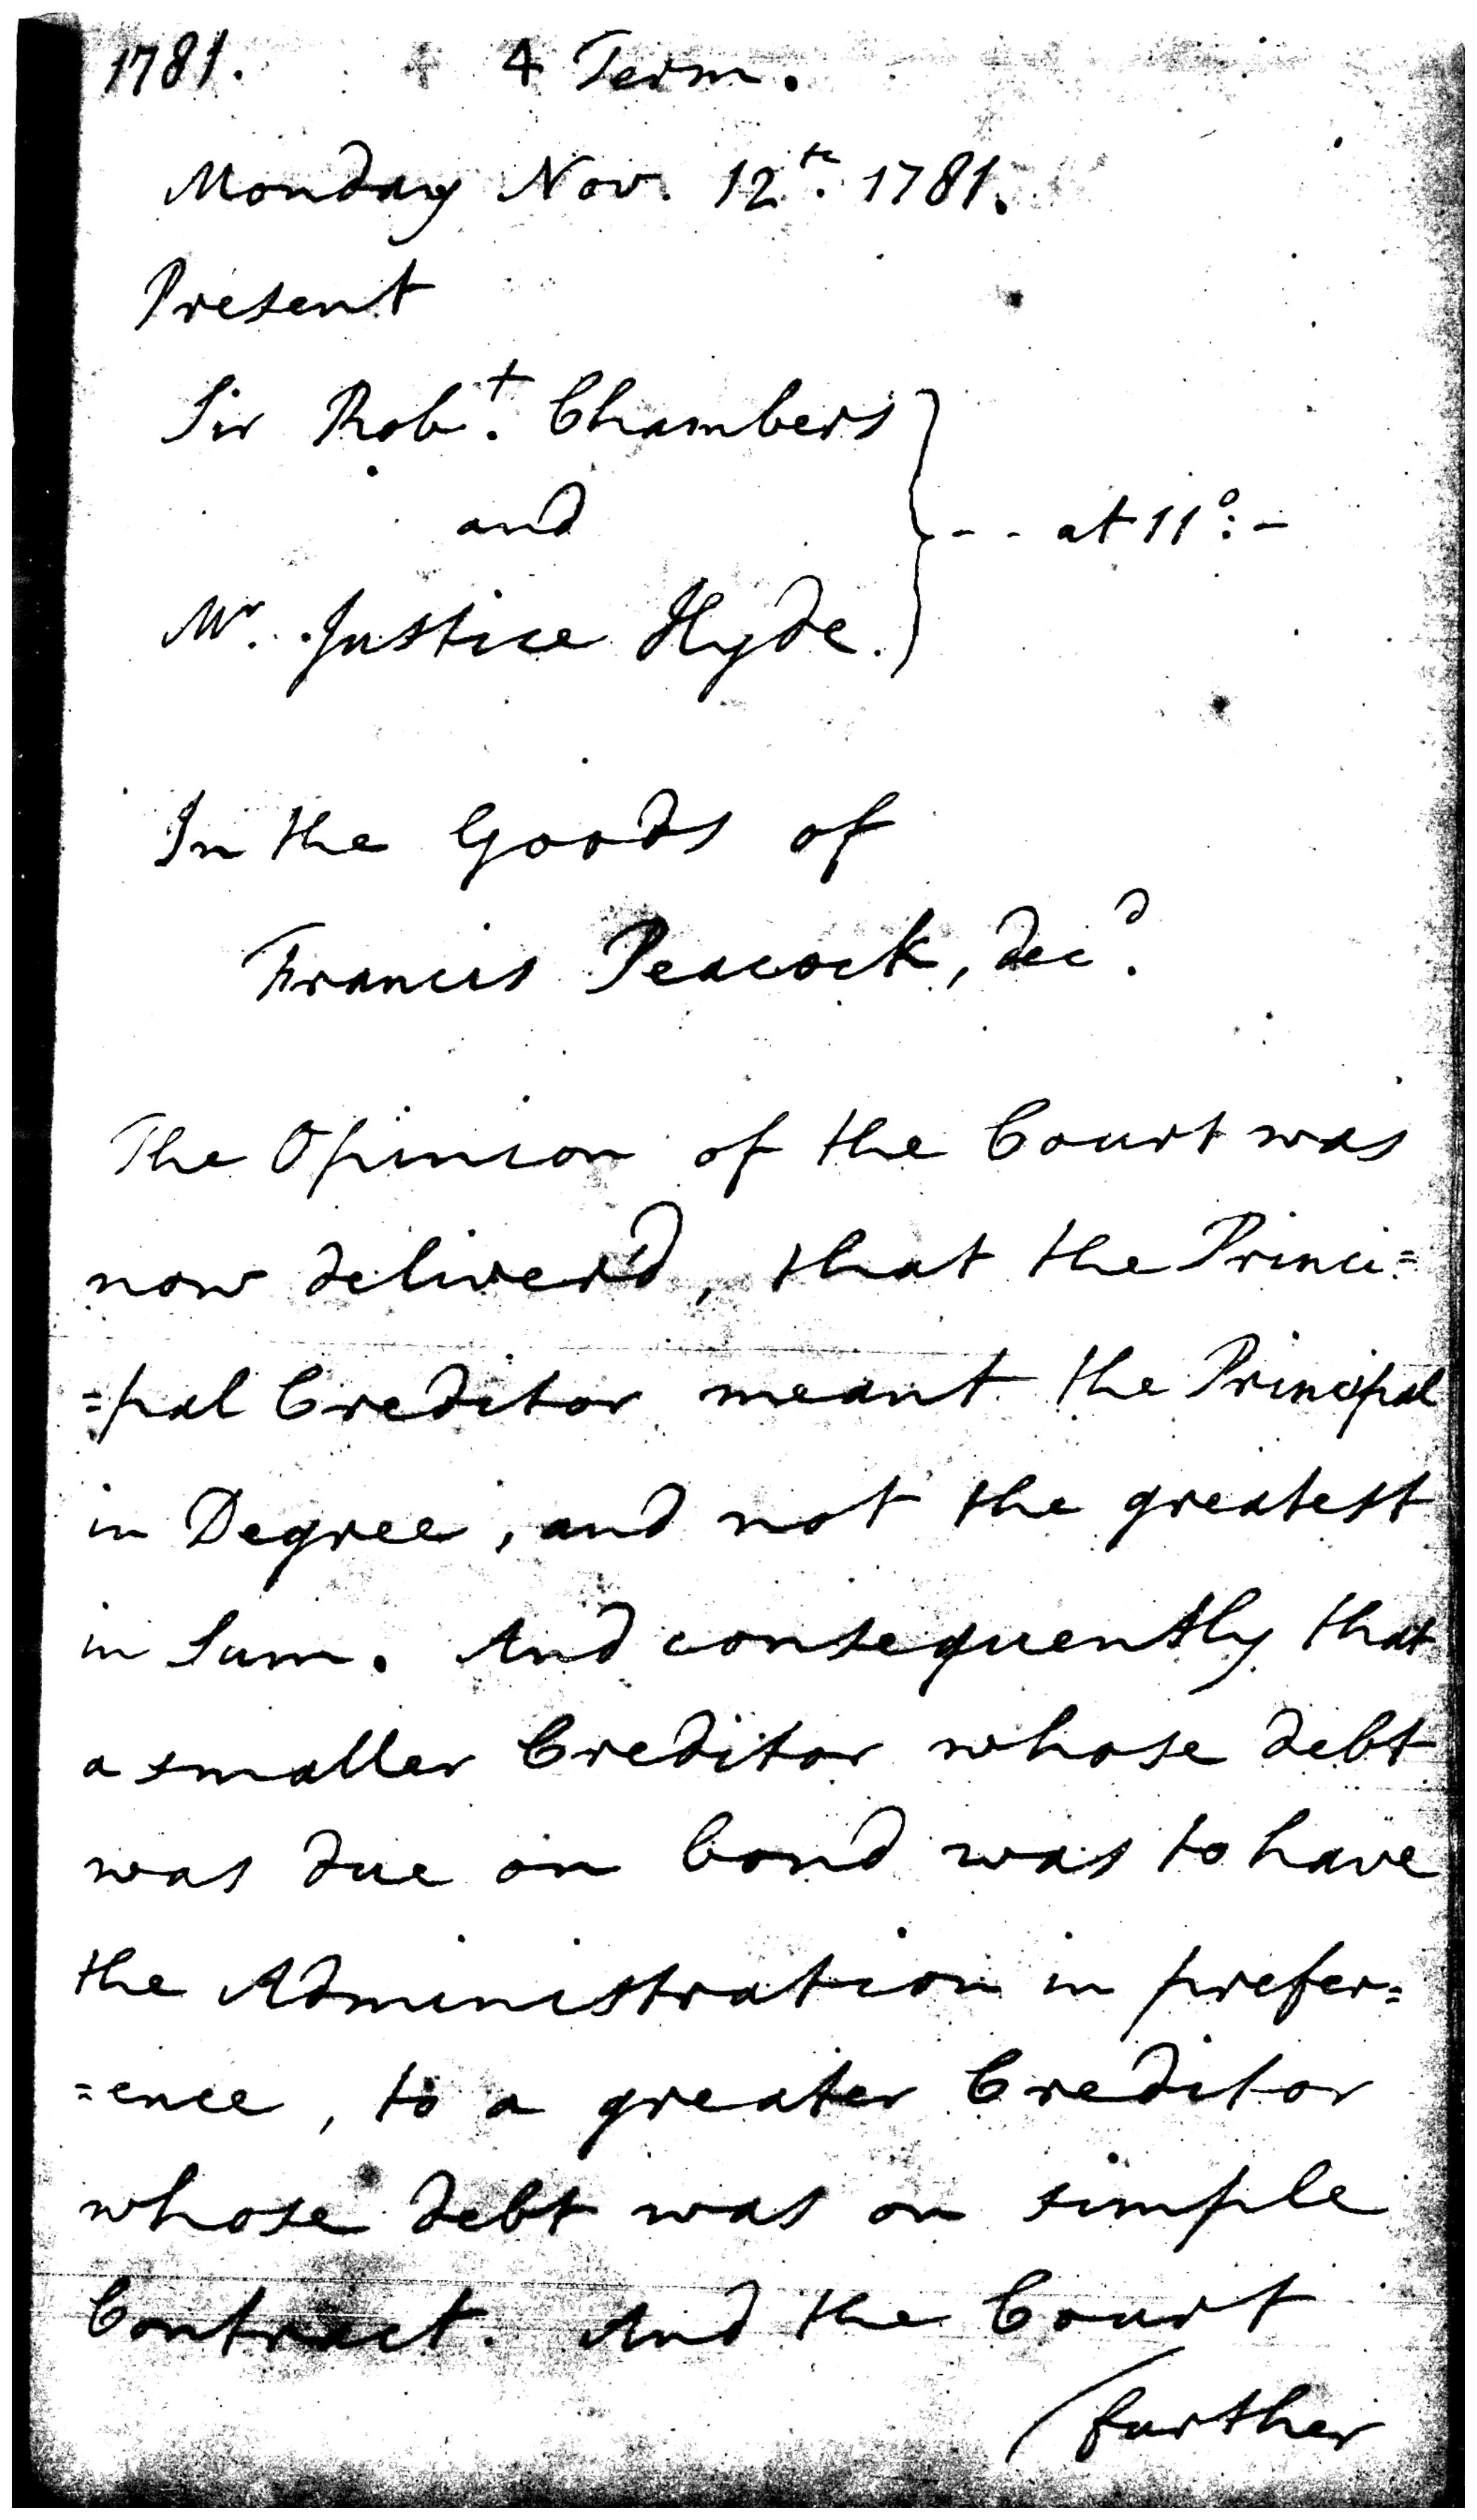 1781. 4 Term.
Monday Nov. 12th. 1781.
Present
Sir Robt. Chambers
and
} - - at 11°: -
Mr. Justice Hyde.
In the Goods of
Francis Peacock, decd.
The Opinion of the Court was
now deliver'd, that the Princi=
=pal Creditor meant the Principal
in Degree, and not the greatest
in Sum. And consequently that
a smaller Creditor whose debt
was due on bond was to have
the Administration in prefer=
=ence, to a greater Creditor
whose debt was on simple
Contract. And the Court
(further